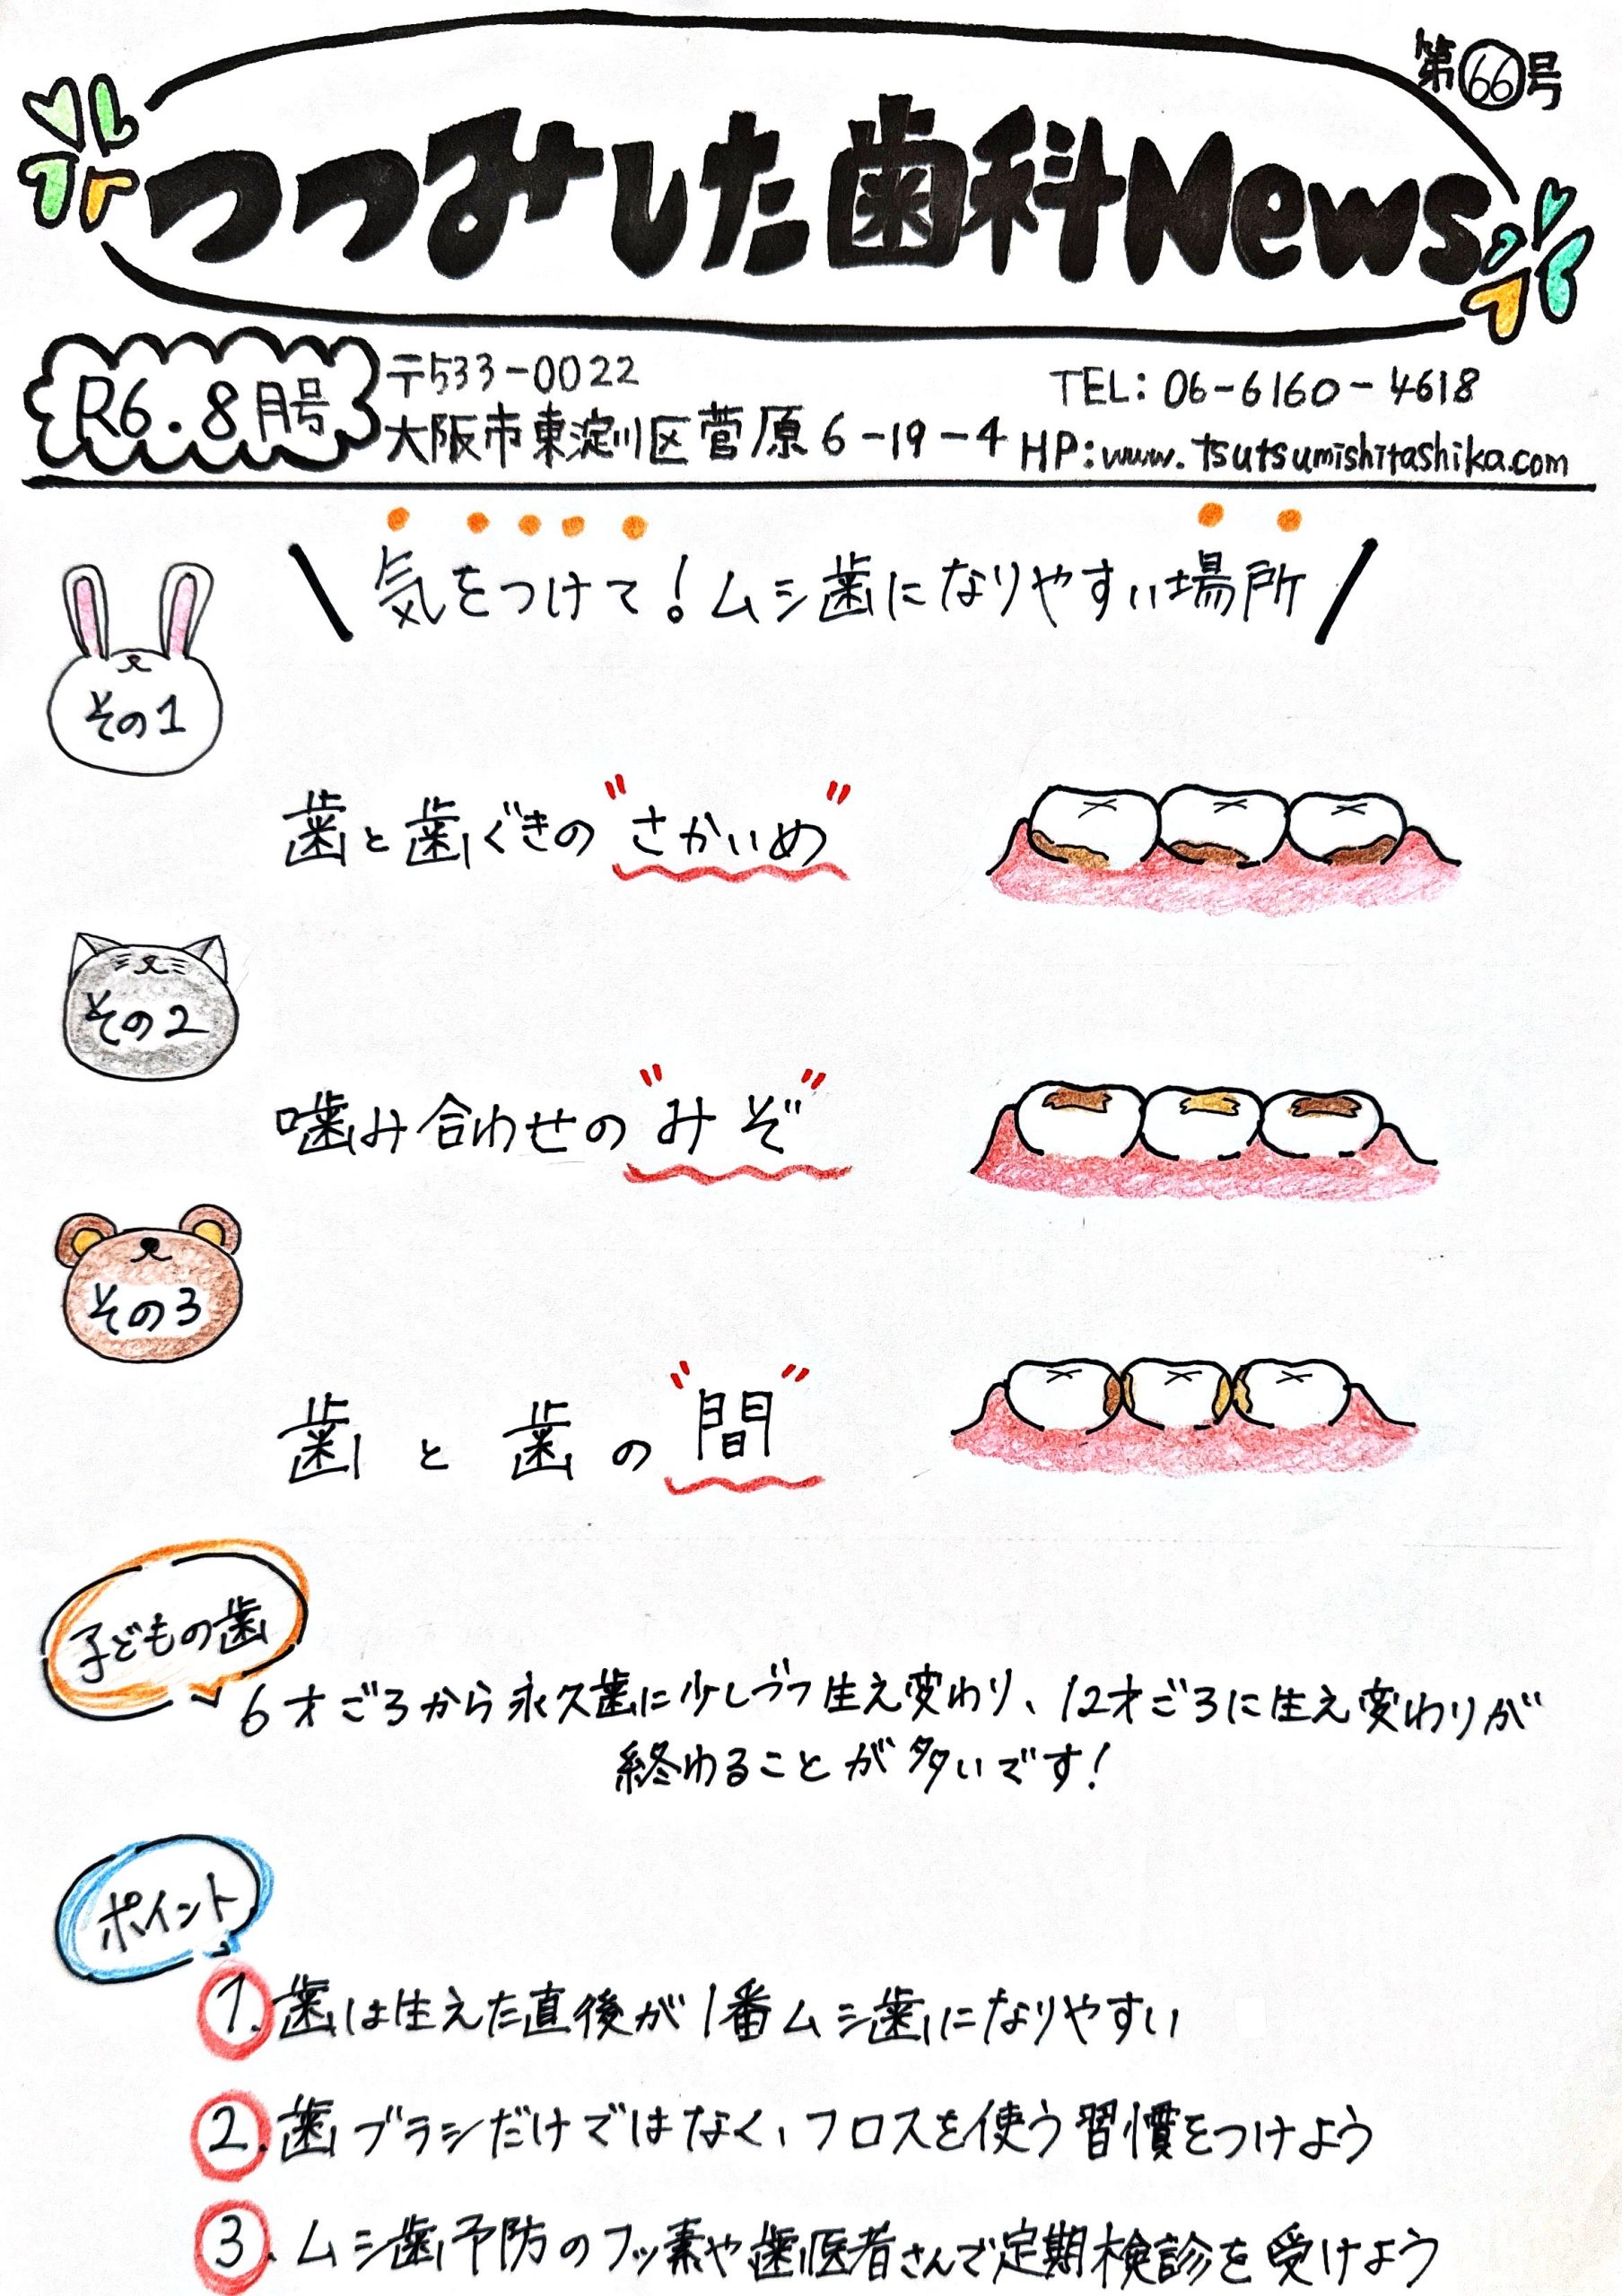 第66号
つつみした歯科News
R6.8月号
〒533-0022
大阪市東淀川区菅原6-19-4
TEL:06-6160-4618
HP:www.tsutsumishitashika.com
\気をつけて!ムシ歯になりやすい場所/
その1
歯と歯ぐきの"さかいめ"
その2
噛み合わせの"みぞ"
その3
歯と歯の"間"
子どもの歯
6才ごろから永久歯に少しづつ生え変わり、12才ごろに生え変わりが
終わることが多いです!
ポイント
1.歯は生えた直後が1番ムシ歯になりやすい
2.歯ブラシだけではなく、フロスを使う習慣をつけよう
3.ムシ歯予防のフッ素や歯医者さんで定期検診を受けよう